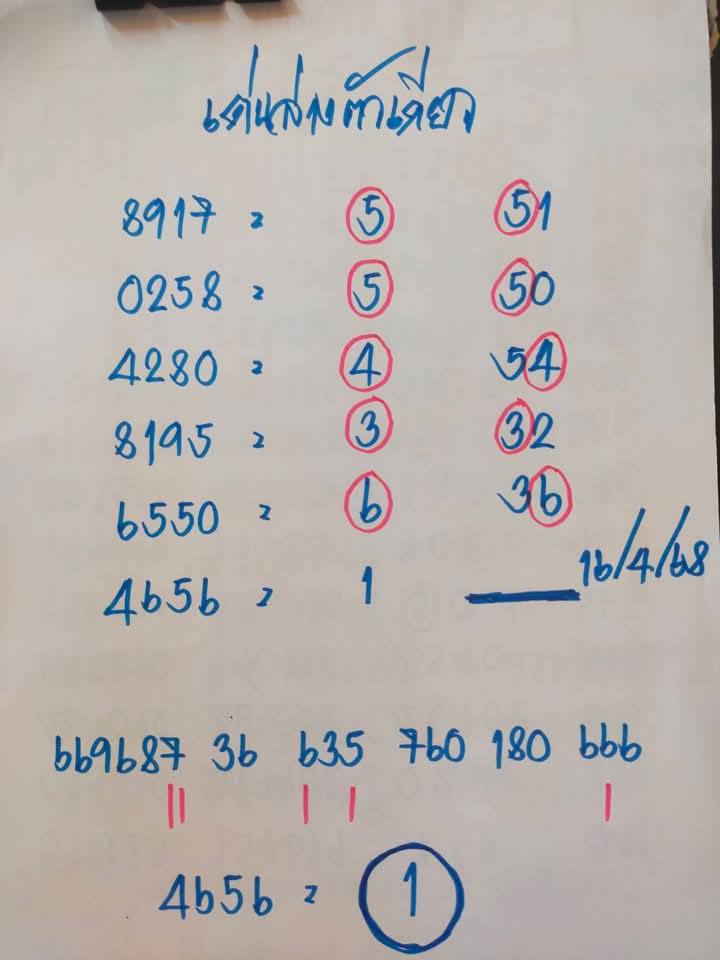 เด่นล่างตัวเดียว
8917 = 5 51
0258 = 5 50
4280 = 4 54
8195 = 3 32
6550 = 6 36
4656 = 1 — 16/4/68
669687 36 635 760 180 666
4656 = 1